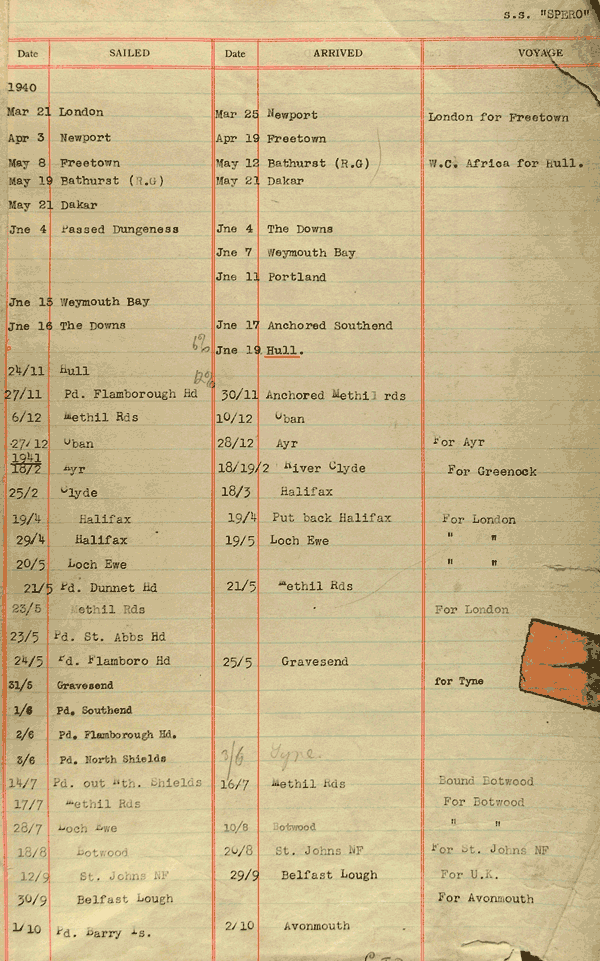 s.s. "SPERO"
Date SAILED Date ARRIVED VOYAGE
1940
Mar 21 London Mar 25 Newport London for Freetown
Apr 3 Newport Apr 19 Freetown
May 8 Freetown May 12 Bathurst (R.G) W.C. Africa for Hull.
May 19 Bathurst (R.G) May 21 Dakar
May 21 Dakar
Jne 4 Passed Dungeness Jne 4 The Downs
Jne 7 Weymouth Bay
Jne 11 Portland
Jne 13 Weymouth Bay
Jne 16 The Downs Jne 17 Anchored Southend
Jne 19 Hull.
24/11 Hull
27/11 Pd. Flamborough Hd 30/11 Anchored Methil rds
6/12 Methil Rds 10/12 Oban
27/12 Oban 28/12 Ayr For Ayr
1941
18/2 Ayr 18/19/2 River Clyde For Greenock
25/2 Clyde 18/3 Halifax
19/4 Halifax 19/4 Put back Halifax For London
29/4 Halifax 19/5 Loch Ewe " "
20/5 Loch Ewe " "
21/5 Pd. Dunnet Hd 21/5 Methil Rds
23/5 Methil Rds For London
23/5 Pd. St. Abbs Hd
24/5 Pd. Flamboro Hd 25/5 Gravesend
31/5 Gravesend for Tyne
1/6 Pd. Southend
2/6 Pd. Flamborough Hd.
3/6 Pd. North Shields 3/6 Tyne.
14/7 Pd. out Nth. Shields 16/7 Methil Rds Bound Botwood
17/7 Methil Rds For Botwood
28/7 Loch Ewe 10/8 Botwood " "
18/8 Botwood 20/8 St. Johns NF For St. Johns NF
12/9 St. Johns NF 29/9 Belfast Lough For U.K.
30/9 Belfast Lough For Avonmouth
1/10 Pd. Barry Is. 2/10 Avonmouth